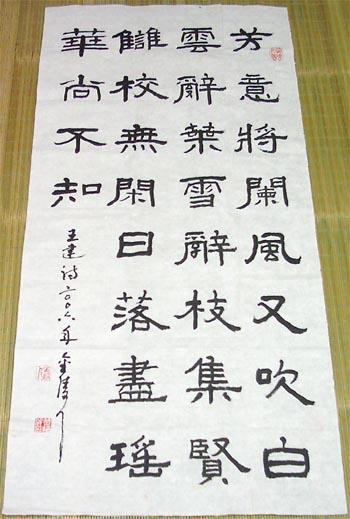 芳意將闌風又吹白
雲辭葉雪辭枝集賢
讎校無閑日落盡瑤
華尚不知
王建詩二〇〇六年金陵